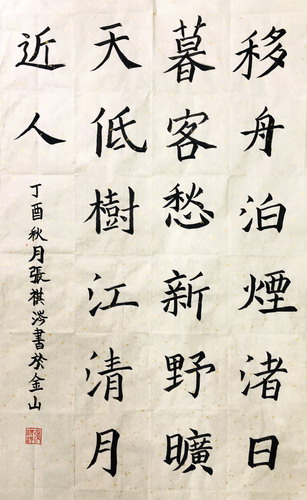 移舟泊煙渚日
暮客愁新野曠
天低樹江清月
近人
丁酉秋月張棋涔書於金山